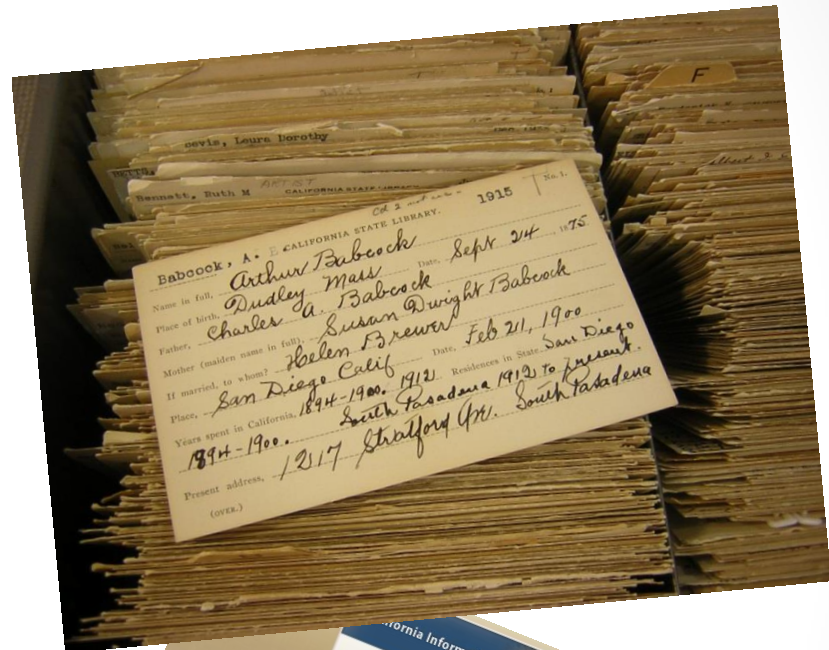 F
evis, Leura Dorothy
Bennett, Ruth M ARTIST CALIFORNIA STATE LIBRARY
Cd 2
1915
No. 1.
Babcock, A. E CALIFORNIA STATE LIBRARY.
Name in full, Arthur Babcock
Place of birth, Dudley Mass Date, Sept 24 1875
Father, Charles A. Babcock
Mother (maiden name in full), Susan Dwight Babcock
If married, to whom? Helen Brewer
Place, San Diego Calif Date, Feb 21, 1900
Years spent in California, 1894-1900. 1912 Residences in State San Diego
1894-1900. South Pasadena 1912 to present.
Present address, 1217 Stratford Ave. South Pasadena
(OVER.)
ifornia Inform